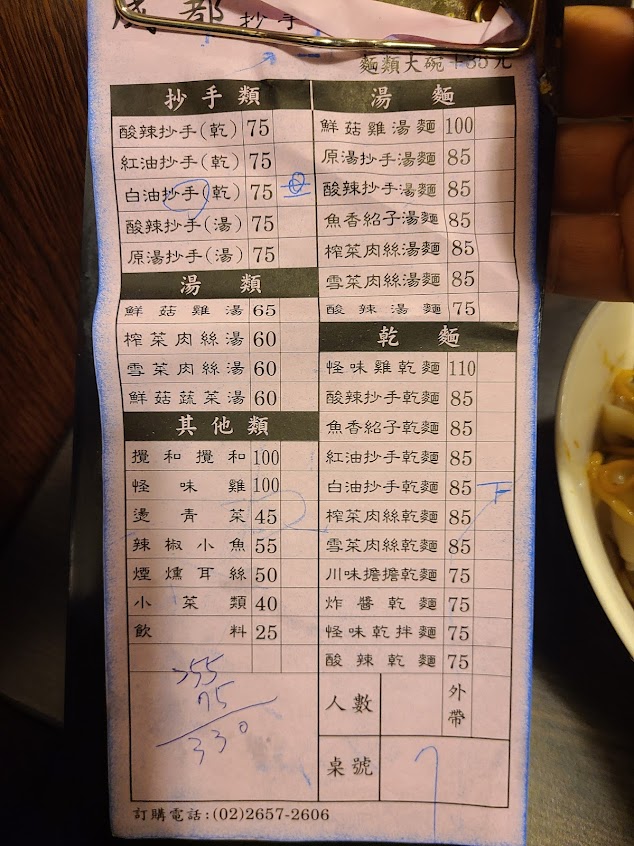 成都抄手
麵類大碗+35元
抄手類
酸辣抄手(乾) 75
紅油抄手(乾) 75
白油抄手(乾) 75
酸辣抄手(湯) 75
原湯抄手(湯) 75
湯類
鮮菇雞湯 65
榨菜肉絲湯 60
雪菜肉絲湯 60
鮮菇蔬菜湯 60
其他類
攪和攪和 100
怪味雞 100
燙青菜 45
辣椒小魚 55
煙燻耳絲 50
小菜類 40
飲料 25
255
75
330
湯麵
鮮菇雞湯麵 100
原湯抄手湯麵 85
酸辣抄手湯麵 85
魚香紹子湯麵 85
榨菜肉絲湯麵 85
雪菜肉絲湯麵 85
酸辣湯麵 75
乾麵
怪味雞乾麵 110
酸辣抄手乾麵 85
魚香紹子乾麵 85
紅油抄手乾麵 85
白油抄手乾麵 85
榨菜肉絲乾麵 85
雪菜肉絲乾麵 85
川味擔擔乾麵 75
炸醬乾麵 75
怪味乾拌麵 75
酸辣乾麵 75
人數 外帶
桌號 7
訂購電話:(02)2657-2606